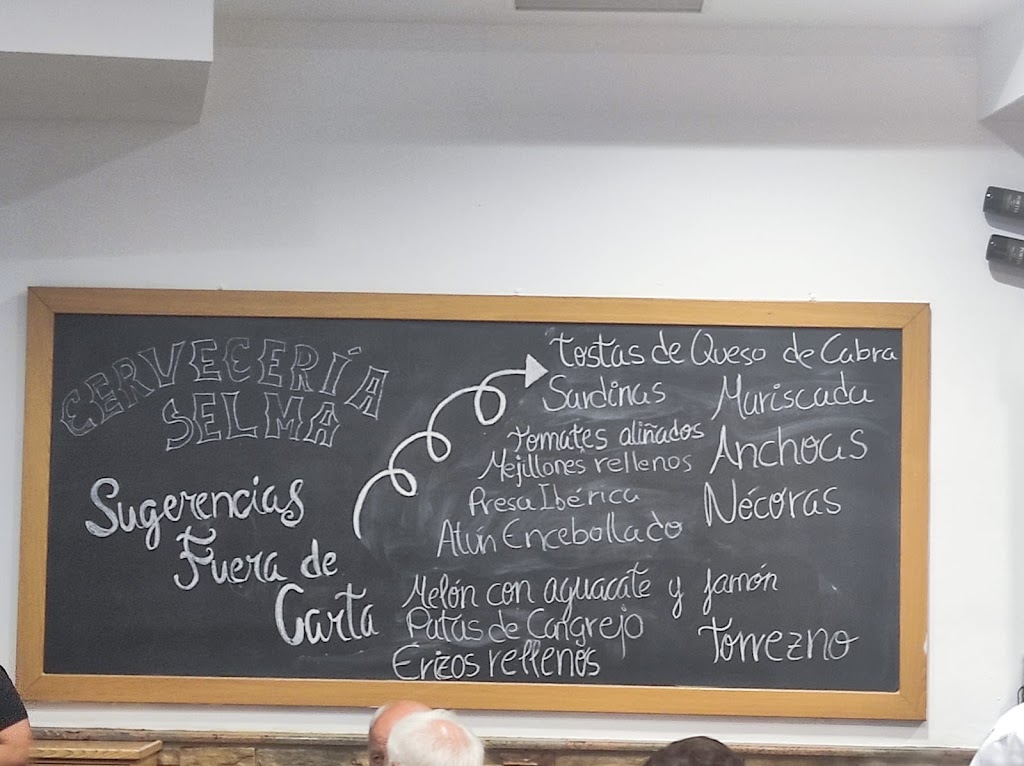 CERVECERÍA
SELMA
Sugerencias
Fuera de
Carta
Tostas de Queso de Cabra
Sardinas
Mariscada
Tomates aliñados
Anchoas
Mejillones rellenos
Presa Ibérica
Nécoras
Atún Encebollado
Melón con aguacate y jamón
Patas de Cangrejo
Torrezno
Erizos rellenos